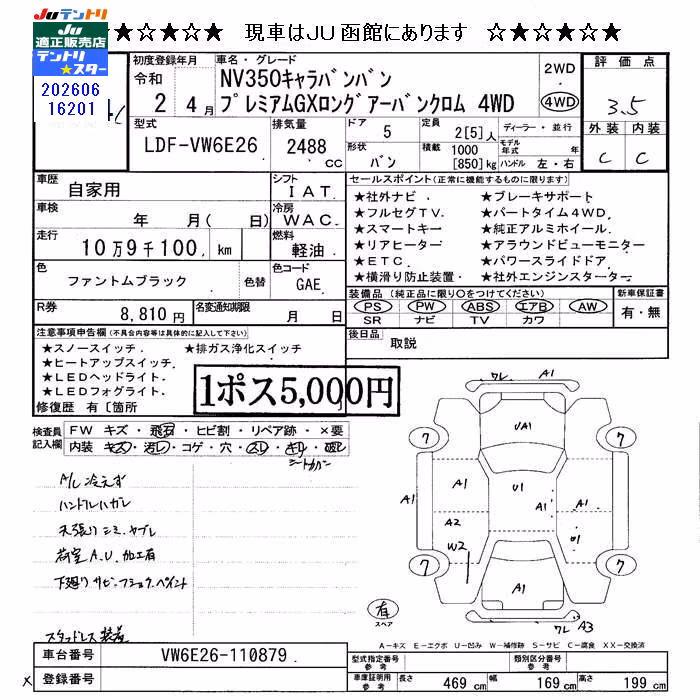 JUテントリ
JU
適正販売店
テントリ
★スター
★☆★☆★ 現車はJU函館にあります ☆★☆★☆★
202606
16201
初度登録年月
令和
2 4月
車名・グレード
NV350キャラバンバン
プレミアムGXロングアーバンクロム 4WD
2WD
4WD
評価点
3.5
外装 内装
C C
型式
LDF-VW6E26
排気量
2488
cc
ドア 5
形状 バン
定員 2[5]人
積載 1000
[850]kg
ディーラー・並行
モデル年式 年
ハンドル 左・右
車歴 自家用
シフト IAT.
車検 年 月( 日)
冷房 WAC.
走行 10万9千100. km
燃料 軽油.
色 ファントムブラック. 色替
色コード GAE.
R券 8,810円
名変通知期限 月 日
セールスポイント(正常に機能するものに限ります)
★社外ナビ. ★ブレーキサポート
★フルセグTV. ★パートタイム4WD.
★スマートキー ★純正アルミホイール.
★リアヒーター ★アラウンドビューモニター
★ETC. ★パワースライドドア
★横滑り防止装置. ★社外エンジンスターター.
装備品(純正品に限り○をつけてください)
PS PW ABS エアB AW
SR ナビ TV カワ
新車保証書
有・無
後日品 取説
注意事項申告欄(不具合内容等は具体的に記入して下さい)
★スノースイッチ. ★排ガス浄化スイッチ
★ヒートアップスイッチ.
★LEDヘッドライト.
★LEDフォグライト.
修復歴 有[箇所
1ポス5,000円
検査員記入欄
FW キズ・飛石・ヒビ割・リペア跡・×要
内装・キズ・汚レ・コゲ・穴・スレ・キレ・破レ
シートカバー
A/C 冷えず
ハンドルハガレ
天張りシミ、ヤブレ
荷室A.U.加工有
下廻りサビ、フショク、ペイント
スタッドレス装着
ワレ A1
7 7
UA1
A1 A1 U1 A1 A1 A1
A2
W2 U1
7 7
A1
有
スペア
ワレ A3
A-キズ E-エクボ U-凹み W-補修跡 S-サビ C-腐食 XX-交換済
車台番号 VW6E26-110879.
登録番号
型式指定番号
参考
類別区分番号
参考
車庫証明用
参考
長さ 469 cm 幅 169 cm 高さ 199 cm